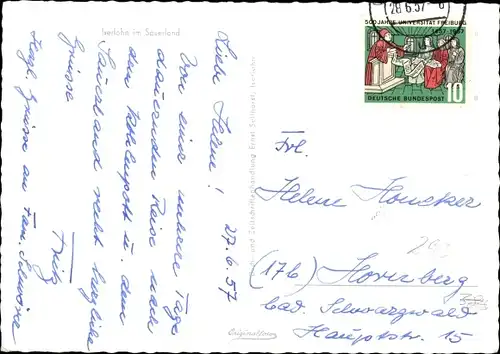 Iserlohn im Sauerland
Liebe Helene!
27.6.57
Von einer mehrere Tage
dauernden Reise nach
dem Kohlenpott u. dem
Sauerland recht herzliche
Grüsse
Fritz
Herzl. Grüsse an Fam.
28.6.57
500 JAHRE UNIVERSITÄT FREIBURG
1457-1957
DEUTSCHE BUNDESPOST 10
Frl.
Helene
(17b) Hornberg
bad. Schwarzwald
Hauptstr. 15
Originalfoto